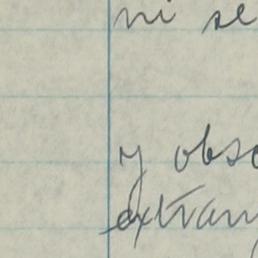 ni se
y obso
extran